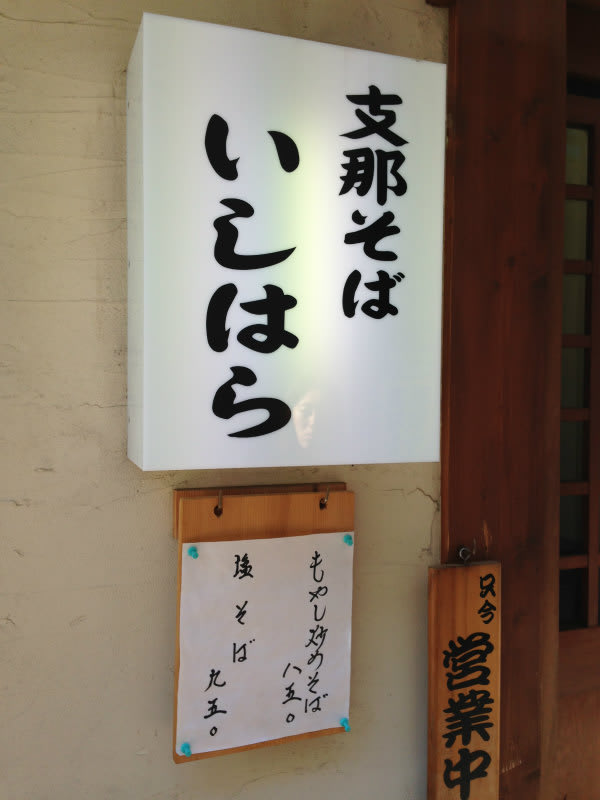 支那そば
いしはら
もやし炒めそば
八五〇
塩そば
九五〇
只今
営業中